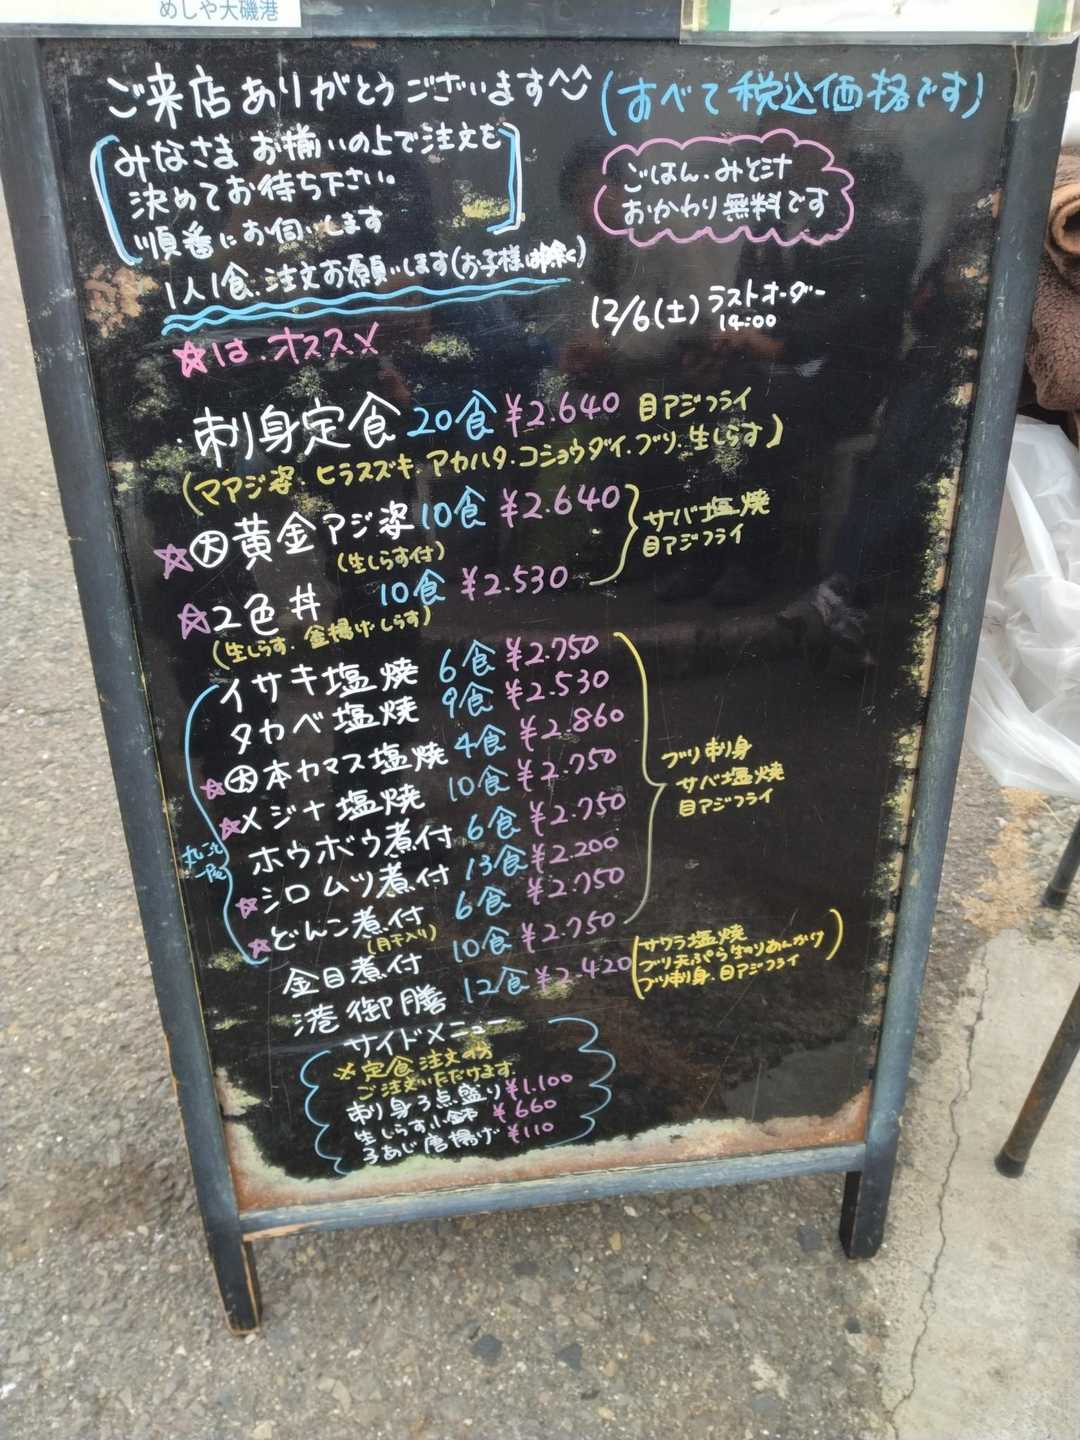 めしや大磯港
ご来店ありがとうございます^^
(すべて税込価格です)
みなさまお揃いの上で注文を
決めてお待ち下さい。
順番にお伺いします
ごはん.みそ汁
おかわり無料です
1人1食.注文お願いします(お子様は除く)
12/6(土)ラストオーダー
14:00
☆は.オススメ
・刺身定食 20食 ¥2.640 目アジフライ
(マアジ姿.ヒラスズキ.アカハタ.コショウダイ.ブリ.生しらす)
☆大黄金アジ姿 10食 ¥2.640
(生しらす付)
サバ塩焼
目アジフライ
☆2色丼 10食 ¥2.530
(生しらす.釜揚げしらす)
イサキ塩焼 6食 ¥2.750
タカベ塩焼 9食 ¥2.530
☆大本カマス塩焼 4食 ¥2.860
☆メジナ塩焼 10食 ¥2.750
ホウボウ煮付 6食 ¥2.750
☆シロムツ煮付 13食 ¥2.200
☆どんこ煮付 6食 ¥2.750
(肝入り)
金目煮付 10食 ¥2.750
港御膳 12食 ¥2.420
丸ごと
一尾
ブリ刺身
サバ塩焼
目アジフライ
(サワラ塩焼
ブリ天ぷら生のりあんかけ
ブリ刺身.目アジフライ)
サイドメニュー
※定食注文の方
ご注文いただけます.
刺身3点盛り ¥1.100
生しらす小鉢 ¥660
子あじ唐揚げ ¥110